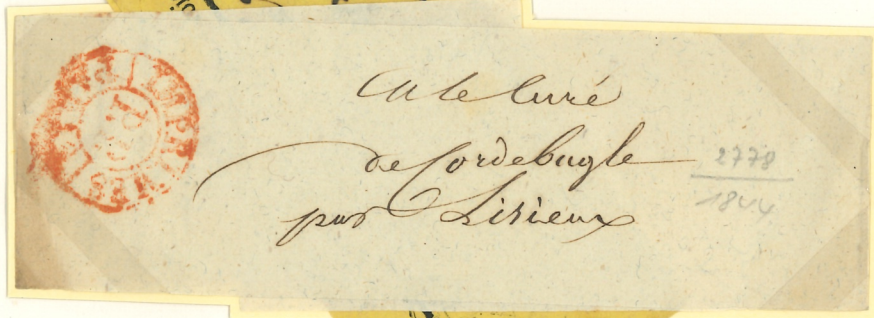 IMPRIMÉS
M le Curé
de Cordebugle
par Lisieux
2778
1844